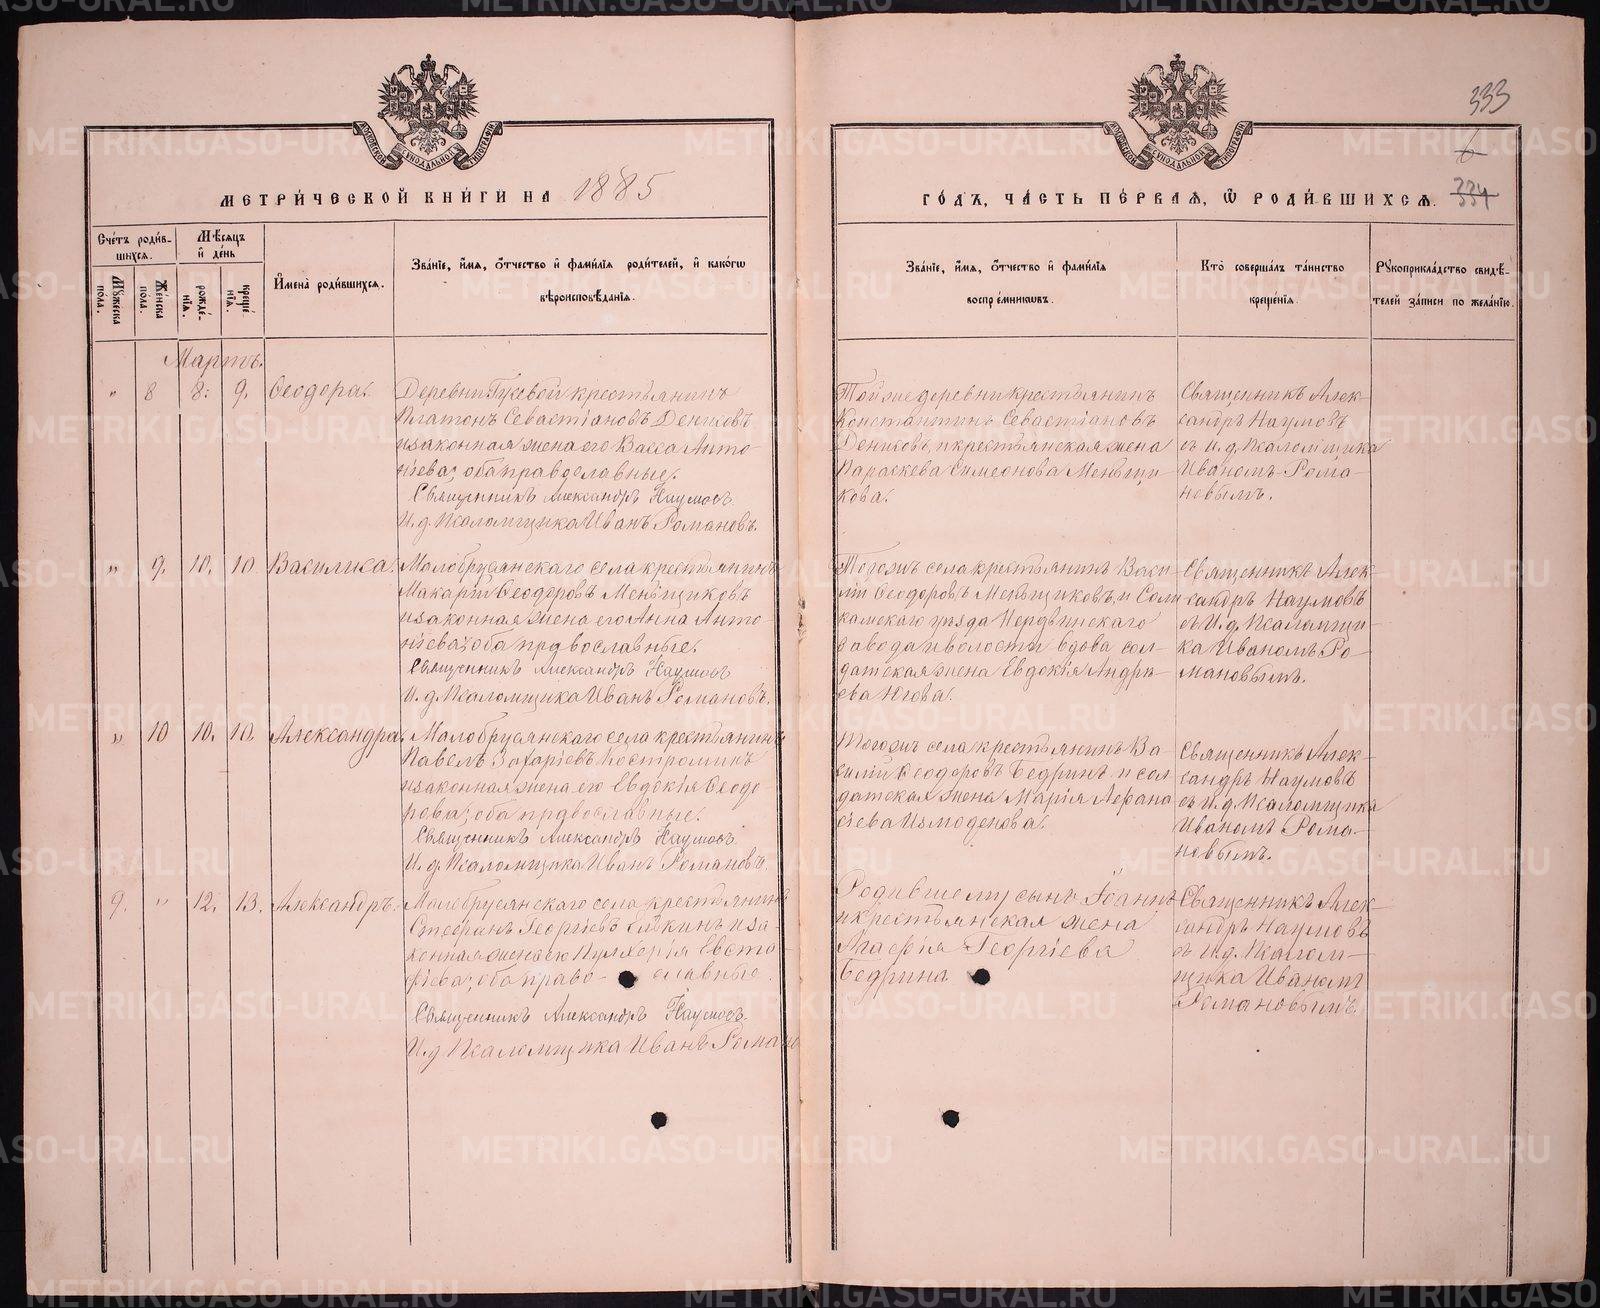 333
6
334
МЕТРИ́ЧЕСКОЙ КНИ́ГИ НА 1885
ГО́ДЪ, ЧА́СТЬ ПЕ́РВАЯ, Ѽ РОДИ́ВШИХСЯ.
МОСКОВСКОЙ СѴНОДАЛЬНОЙ ТИПОГРАФІИ
МОСКОВСКОЙ СѴНОДАЛЬНОЙ ТИПОГРАФІИ
Сче́тъ роди́в-
шихся.
Мѣ́сяцъ
и҆ де́нь
Му́жеска
по́ла.
Же́нска
по́ла.
рожде́-
нїя.
креще́-
нїя.
И҆мена̀ роди́вшихся.
Зва́нїе, и҆́мя, о҆́тчество и҆ фами́лїя роди́телей, и҆ како́гѡ
вѣроисповѣ́данїя.
Зва́нїе, и҆́мя, о҆́тчество и҆ фами́лїя
воспрїе́мникѡвъ.
Кто̀ соверша́лъ та́инство
креще́нїя.
Рꙋкоприкла́дство свидѣ́-
телей за́писи по жела́нїю.
Мартъ.
" 8 8. 9. Ѳеодора.
Деревни Гусевой крестьянинъ
Платонъ Севастіановъ Дениковъ
и законная жена его Васса Анто-
ніева; оба православные.
Священникъ Александръ Наумовъ.
И. д. Псаломщика Иванъ Романовъ.
Той же деревни крестьянинъ
Константинъ Севастіановъ
Дениковъ, и крестьянская жена
Параскева Симеонова Меньщи-
кова.
Священникъ Алек-
сандръ Наумовъ
съ И. д. Псаломщика
Иваномъ Рома-
новымъ.
" 9. 10. 10 Василиса.
Малобрусянскаго села крестьянинъ
Макарій Ѳеодоровъ Меньщиковъ
и законная жена его Анна Анто-
ніева; оба православные.
Священникъ Александръ Наумовъ
И. д. Псаломщика Иванъ Романовъ.
Тогожъ села крестьянинъ Васи-
лій Ѳеодоровъ Меньщиковъ, и Соли
камскаго уѣзда
завода и волости вдова сол-
датская жена Евдокія Андрѣ-
ева Югова.
Священникъ Алек-
сандръ Наумовъ
съ И. д. Псаломщи-
ка Иваномъ Ро-
мановымъ.
" 10 10. 10. Александра.
Малобрусянскаго села крестьянинъ
Павелъ Захаріевъ Костроминъ
и законная жена его Евдокія Ѳеодо-
рова; оба православные.
Священникъ Александръ Наумовъ
И. д. Псаломщика Иванъ Романовъ.
Тогожъ села крестьянинъ Ва-
силій Ѳеодоровъ Бедринъ и сол-
датская жена Марія Аѳана
сіева Измоденова.
Священникъ Алек-
сандръ Наумовъ
съ И. д. Псаломщика
Иваномъ Рома-
новымъ.
9. " 12. 13. Александръ.
Малобрусянскаго села крестьянинъ
Стефанъ Георгіевъ Елькинъ и за-
конная жена ею Пулхерія Евсто-
фіева; оба право- славные
Священникъ Александръ Наумовъ.
И. д. Псаломщика Иванъ Романо
Родившему сынъ Іоаннъ
и крестьянская жена
Агафія Георгіева
Бедрина
Священникъ Алек-
сандръ Наумовъ
съ И. д. Псалом-
щика Иваномъ
Романовымъ.
METRIKI.GASO-URAL.RU